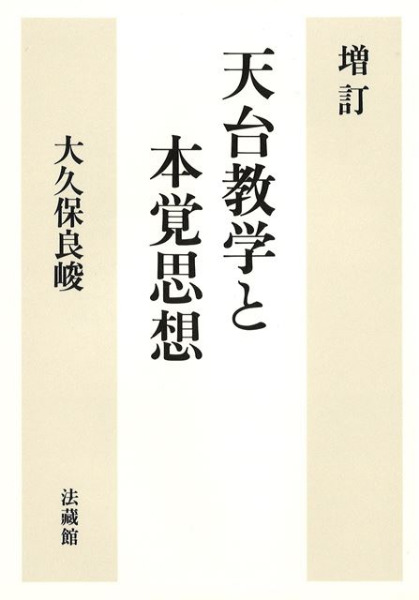 増訂
天台教学と
本覚思想
大久保良峻
法藏館